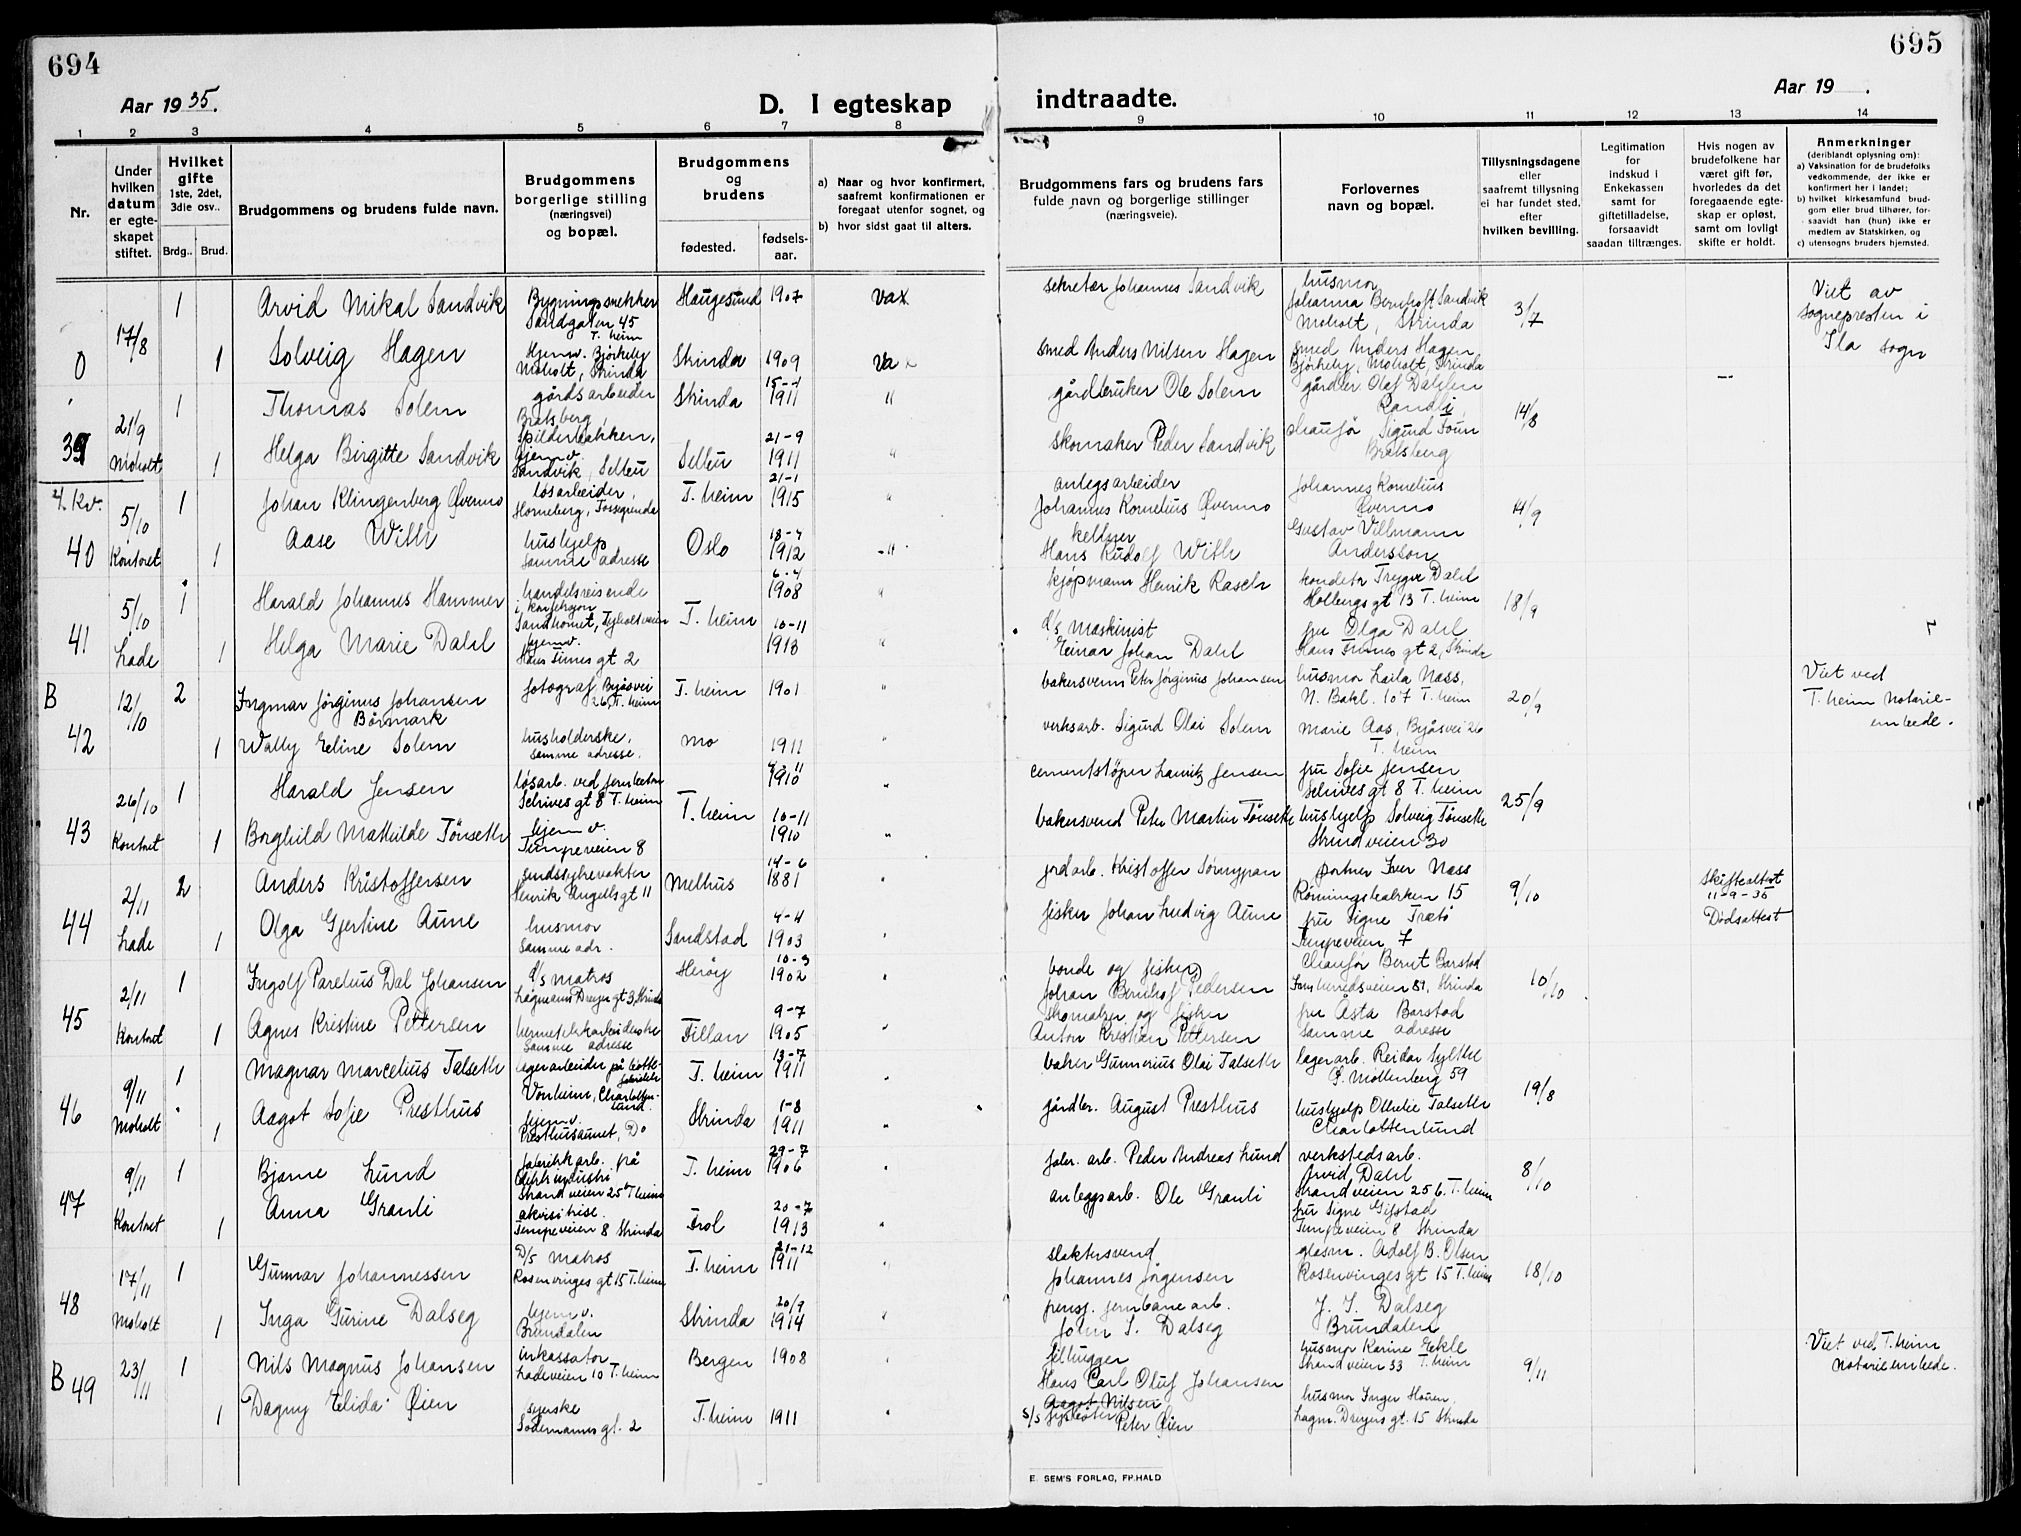 694
Aar 1935.
D. I egteskap
1 2 3 4 5 6 7 8
Nr.
Under hvilken datum er egteskapet stiftet.
Hvilket gifte 1ste, 2det, 3die osv..
Brdg.. Brud.
Brudgommens og brudens fulde navn.
Brudgommens borgerlige stilling (næringsvei) og bopæl.
Brudgommens og brudens
fødested. fødselsaar.
a) Naar og hvor konfirmert, saafremt konfirmationen er foregaat utenfor sognet, og
b) hvor sidst gaat til alters.
0 17/8
1 Arvid Mikal Sandvik Bygningssnekker Haugesund 1907 vax
Sandgaten 45
T.heim
1 Solveig Hagen Hjemv. Bjørkeby Strinda 1909 Va
Moholt, Strinda
39 21/9 Moholt
1 Thomas Solem gårdsarbeider Strinda 15-4 1911 "
Bratsberg
1 Helga Birgitte Sandvik hjemv. Selbu 21-9 1911 "
Sandvik, Selbu
4. kv.
40 5/10 Kontoret
1 Johan Klingenberg Øvermo løsarbeider, T.heim 21-1 1915 "
Horneberg, Fossegrenda
1 Aase With hushjelp Oslo 18-7 1912 -"
samme adresse
41 5/10 Lade
1 Harald Johannes Hammer handelsreisende T.heim 6-4 1908 "
i konfeksjon
1 Helga Marie Dahl hjemv. 10-11 1913 "
Hans Finnes gt 2
B
42 12/10
2 Ingmar Jørginus Johansen fotograf Byåsvei T.heim 1901 "
Børmark 26, T.heim
1 Wally Eeline Solem husholderske, Mo 1911 "
samme adresse.
43 26/10 Kontoret
1 Harald Jensen løsarb. ved jernbetong T.heim 1910 "
Schives gt 8 T.heim
1 Borghild Mathilde Tønseth hjemv. 10-11 1910 "
Tempeveien 8
44 2/11 Lade
2 Anders Kristoffersen sindssykevokter Melhus 14-6 1881 "
Henrik Angells gt 11
1 Olga Gjertine Aune husmor Sandstad 4-4 1903 "
samme adr.
45 2/11 Kontoret
1 Ingolf Parelius Dal Johansen D/s matros Herøy 10-3 1902 "
Lagmann Dreyers gt 3, Strinda
1 Agnes Kristine Pettersen hermetikkarbeiderske Fillan 9-7 1905 "
samme adresse
46 9/11 Moholt
1 Magnar Marcelius Talseth lagerarbeider på T.heim 13-7 1911
Vonheim, Charlottenlund.
1 Aagot Sofie Presthus hjemv. Strinda 1-8 1911 "
Presthusaunet, Do
47 9/11 Kontoret
1 Bjarne Lund fabrikkarb. på T.heim 29-7 1906 "
Strandveien 25b T.heim
1 Anna Granli akvisitrise. Frol 20-7 1913 "
Tempeveien 8 Strinda
48 17/11 Moholt
1 Gunnar Johannessen D/s Matros T.heim 21-12 1911 "
Rosenvinges gt 15 T.heim
1 Inga Gurine Dalseg hjemv. Strinda 20/9 1914 "
Brundalen
B 49 23/11
1 Nils Magnus Johansen inkassator Bergen 1908
Ladeveien 10 T.heim
1 Dagny Elida Øien syerske T.heim 1911 "
Sødemanns gt. 2
695
Aar 19 .
indtraadte.
9 10 11 12 13 14
Brudgommens fars og brudens fars fulde navn og borgerlige stillinger (næringsveie).
Forlovernes navn og bopæl.
Tillysningsdagene eller saafremt tillysning ei har fundet sted, efter hvilken bevilling.
Legitimation for indskud i Enkekassen samt for giftetilladelse, forsaavidt saadan tiltrænges.
Hvis nogen av brudefolkene har været gift før, hvorledes da det foregaaende egteskap er opløst, samt om lovligt skifte er holdt.
Anmerkninger (deriblandt oplysning om):
a) Vaksination for de brudefolks vedkommende, der ikke er konfirmert her i landet;
b) hvilket kirkesamfund brudgom eller brud tilhører, forsaavidt han (hun) ikke er medlem av Statskirken, og
c) utensogns bruders hjemsted.
sekretær Johannes Sandvik husmor
Johanna Bernhoft Sandvik
Moholt, Strinda 3/7
Viet av sognepresten i Ila sogn
smed Anders Nilsen Hagen smed Anders Hagen
Bjørkeby, Moholt, Strinda
gårdbruker Ole Solem gårdbr Olaf Dahlen
14/8
skomaker Peder Sandvik chaufør Sigurd
Bratsberg
anlegsarbeider Johannes Kornelius
Johannes Kornelius Øvermo Øvermo 14/9
kellner Gustav Villmann
Hans Rudolf With Andersson
kjøpmann Henrik Rasch konditor Trygve Dahl
Holbergs gt 13 T.heim 18/9
D/s maskinist fru Olga Dahl
Einar Johan Dahl Hans Finnes gt 2, Strinda
bakersvenn Peter Jørginus Johansen husmor Laila Næss,
N. Bakl. 107 T.heim 20/9
Viet ved T.heim notarieembede.
verksarb. Sigurd Olai Solem Marie Aas, Byåsvei 26
T.heim
cementstøper Lauritz Jensen fru Sofie Jensen
Schives gt 8 T.heim
25/9
bakersvend Peter Martin Tønseth hushjelp Solveig Tønseth
Strindveien 30
jordarb. Kristoffer portner Iver Næss
Rønningsbakken 15 9/10
Skifteattest 11-9-35
Dødsattest
fisker Johan Ludvig Aune fru Signe Trætö
Tempeveien 7
bonde og fisker Chaufør Bernt Barstad
Johan Bernhof Pedersen Innherredsveien 81, Strinda 10/10
skomaker og fisker fru Åsta Barstad
Anton Kristian Pettersen samme adresse
baker Gunnerius Olai Talseth lagerarb. Reidar Sylthe
Ø. Møllenberg 59 19/8
gårdbr. August Presthus hushjelp Othelie Talseth
Charlottenlund
fabr. arb. Peder Andreas Lund verkstedsarb.
Arvid Dahl 8/10
Strandveien 25b. T.heim
anleggsarb. Ole Granli fru Signe Gifstad
Tempeveien 8 Strinda
slaktersvend glasm. Adolf B. Olsen
Johannes Jørgensen Rosenvinges gt 15 T.heim 18/10
pensj. jernbanearb. J. I. Dalseg
John I. Dalseg Brundalen
filhugger husmor Karine Eekle
Hans Carl Oluf Johansen Strandveien 33 T.heim 9/11
Viet ved T.heim notarieembede.
Aagot Nilsen husmor Inger Hauen.
s/s fyrbøter Peter Øien Lagm. Dreyers gt. 15 Strinda
E. SEM'S FORLAG, FR.HALD